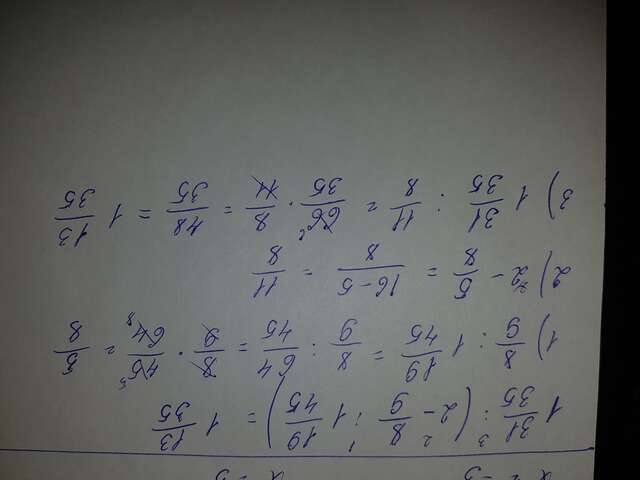 1 31/35 : (2 - 8/9 : 1 19/45) = 1 13/35
1) 8/9 : 1 19/45 = 8/9 : 64/45 = 8/9 · 45/64 = 5/8
2) 2 - 5/8 = 16-5/8 = 11/8
3) 1 31/35 : 11/8 = 66/35 · 8/11 = 48/35 = 1 13/35